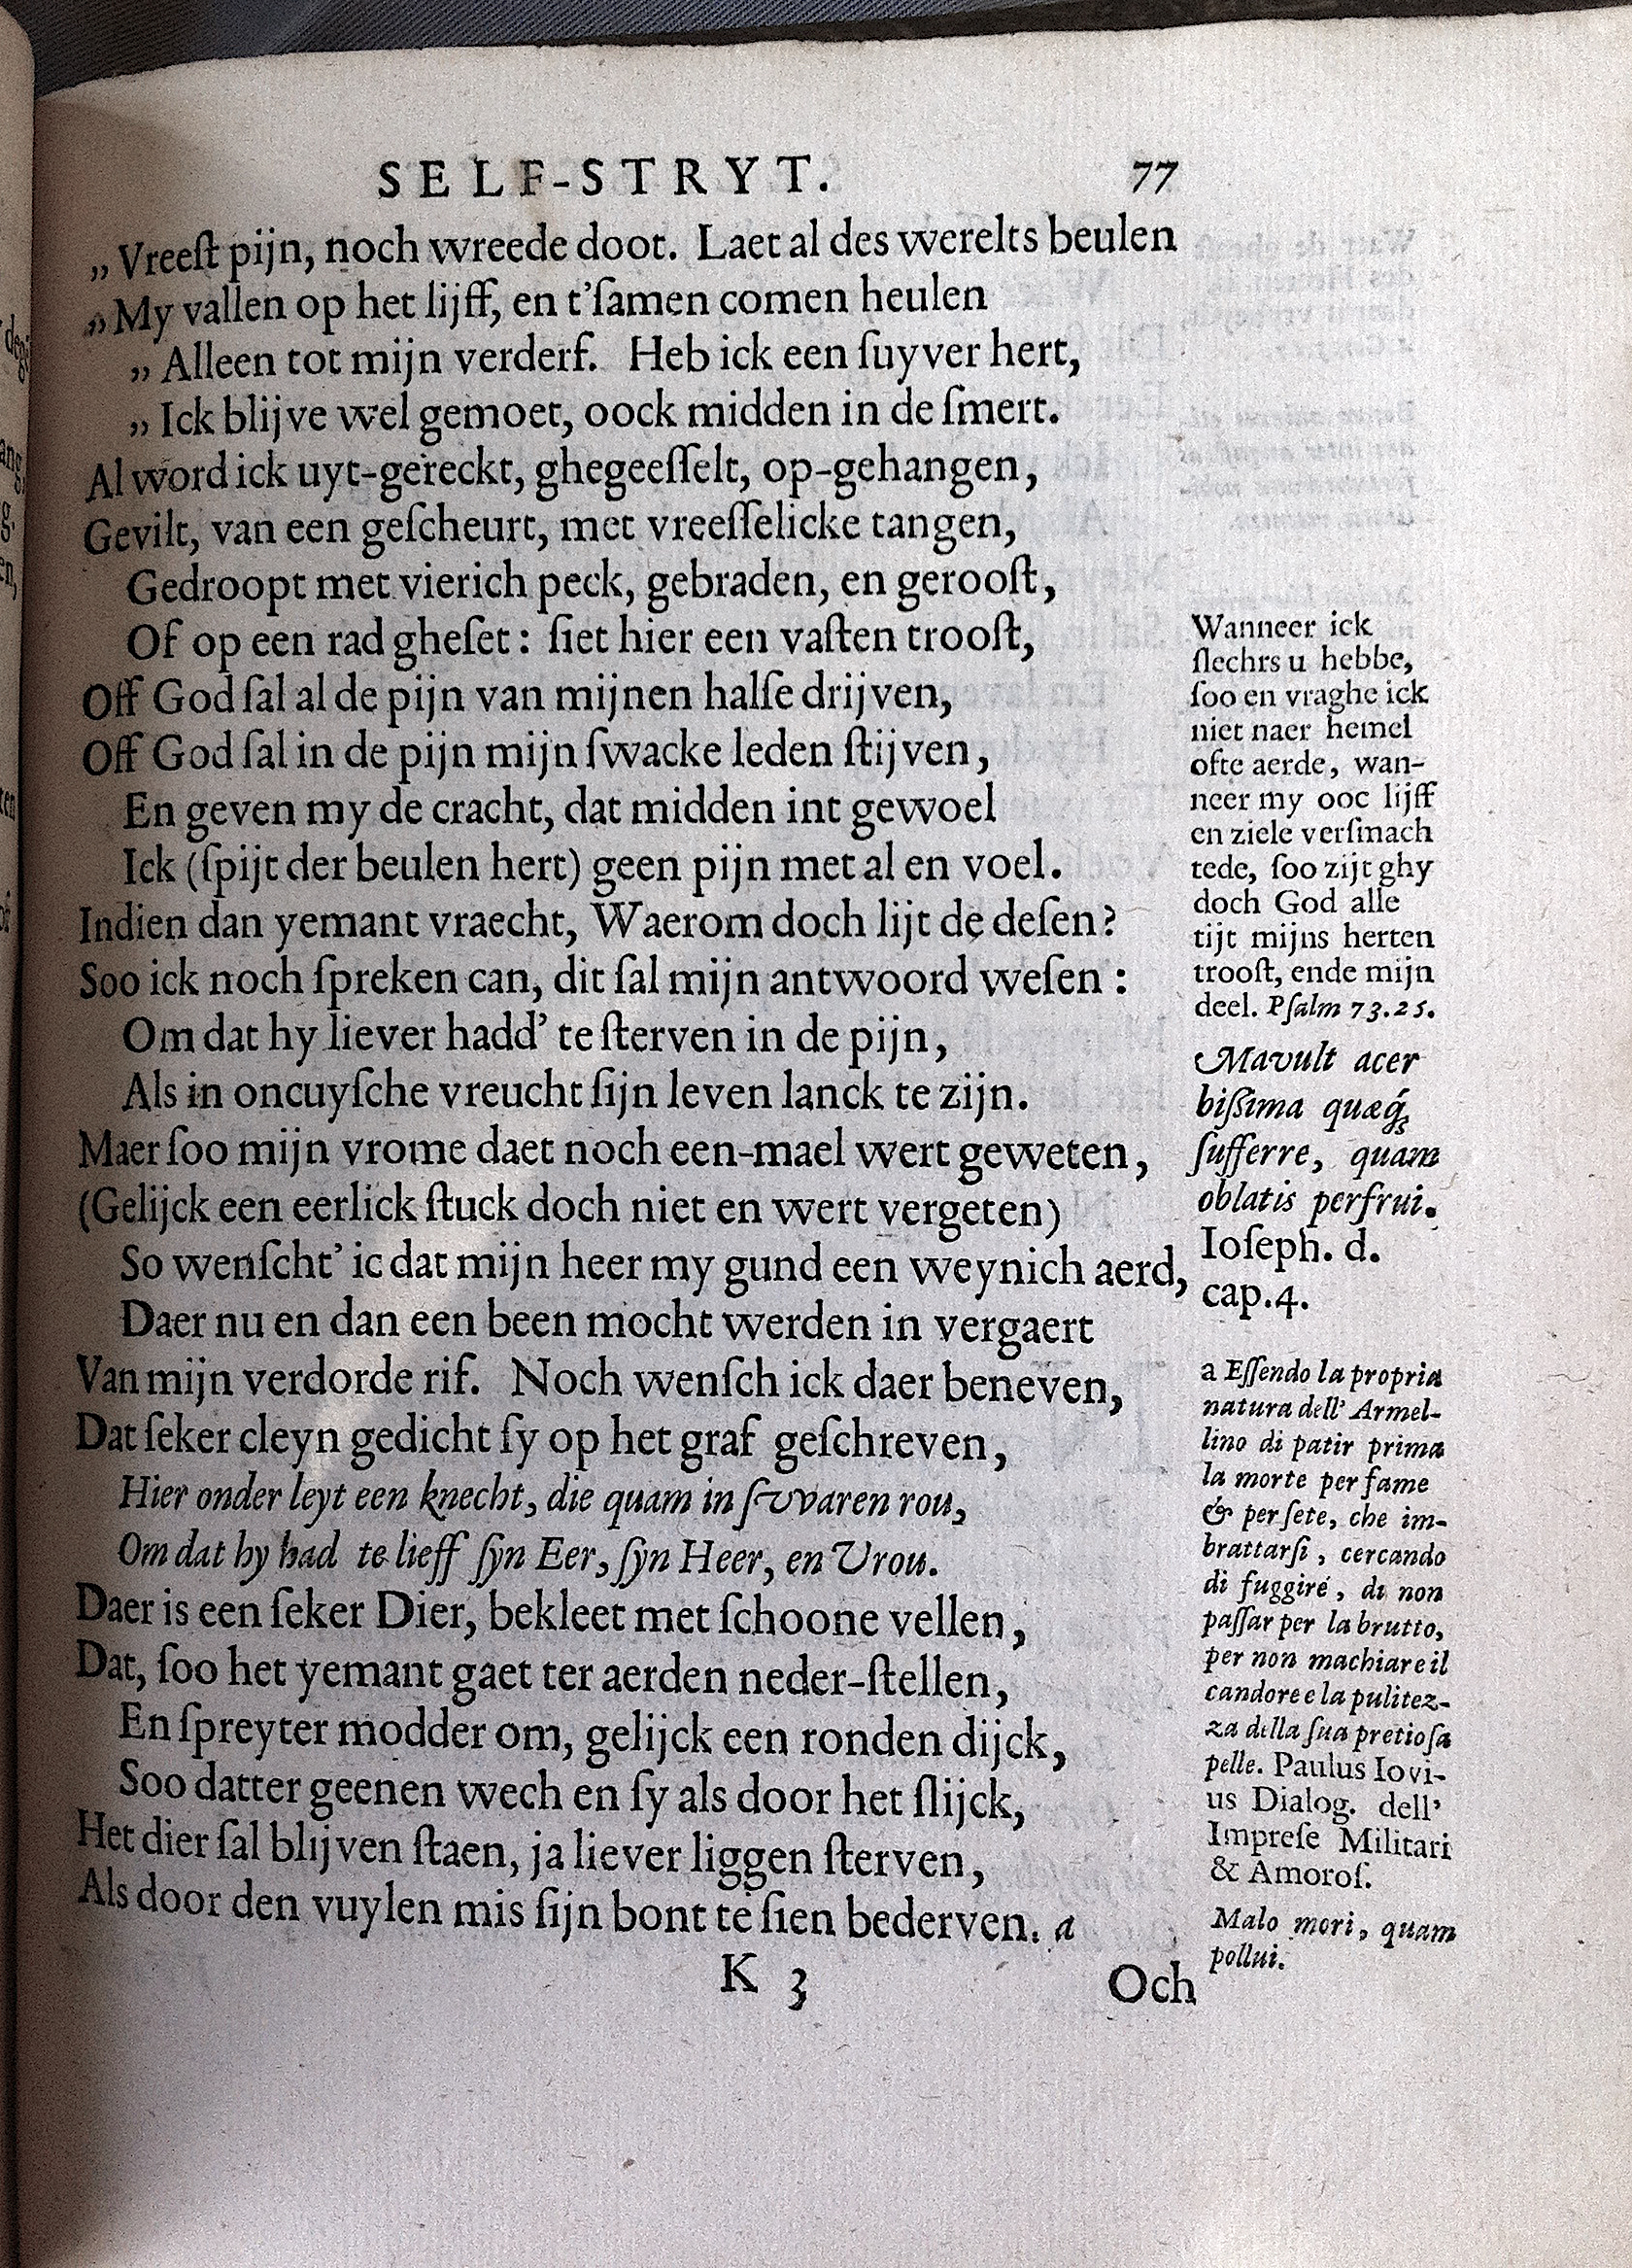 SELF-STRYT. 77
„Vreeſt pijn, noch wreede doot. Laet al des werelts beulen
„My vallen op het lijff, en t'ſamen comen heulen
„Alleen tot mijn verderf. Heb ick een ſuyver hert,
„Ick blijve wel gemoet, oock midden in de ſmert.
Al word ick uyt-gereckt, ghegeeſſelt, op-gehangen,
Gevilt, van een geſcheurt, met vreeſſelicke tangen,
Gedroopt met vierich peck, gebraden, en gerooſt,
Of op een rad gheſet: ſiet hier een vaſten trooſt,
Off God ſal al de pijn van mijnen halſe drijven,
Off God ſal in de pijn mijn ſwacke leden ſtijven,
En geven my de cracht, dat midden int gewoel
Ick (ſpijt der beulen hert) geen pijn met al en voel.
Indien dan yemant vraecht, Waerom doch lijt de deſen?
Soo ick noch ſpreken can, dit ſal mijn antwoord weſen:
Om dat hy liever hadd' te ſterven in de pijn,
Als in oncuyſche vreucht ſijn leven lanck te zijn.
Maer ſoo mijn vrome daet noch een-mael wert geweten,
(Gelijck een eerlick ſtuck doch niet en wert vergeten)
So wenſcht' ic dat mijn heer my gund een weynich aerd,
Daer nu en dan een been mocht werden in vergaert
Van mijn verdorde rif. Noch wenſch ick daer beneven,
Dat ſeker cleyn gedicht ſy op het graf geſchreven,
Hier onder leyt een knecht, die quam in ſwaren rou,
Om dat hy had te lieff ſyn Eer, ſyn Heer, en Vrou.
Daer is een ſeker Dier, bekleet met ſchoone vellen,
Dat, ſoo het yemant gaet ter aerden neder-ſtellen,
En ſpreyter modder om, gelijck een ronden dijck,
Soo datter geenen wech en ſy als door het ſlijck,
Het dier ſal blijven ſtaen, ja liever liggen ſterven,
Als door den vuylen mis ſijn bont te ſien bederven. a
K 3
Och
Wanneer ick
ſlechrs u hebbe,
ſoo en vraghe ick
niet naer hemel
ofte aerde, wan-
neer my ooc lijff
en ziele verſmach
tede, ſoo zijt ghy
doch God alle
tijt mijns herten
trooſt, ende mijn
deel. Pſalm 73.25.
Mavult acer
biſſima quæq́ꝫ
ſufferre, quam
oblatis perfrui.
Ioſeph. d.
cap.4.
a Eſſendo la propria
natura dell' Armel-
lino di patir prima
la morte per fame
& per ſete, che im-
brattarſi, cercando
di fuggire, di non
paſſar per la brutto,
per non machiare il
candore e la pulitez-
za della ſua pretioſa
pelle. Paulus Iovi-
us Dialog. dell'
Impreſe Militari
& Amoroſ.
Malo mori, quam
pollui.